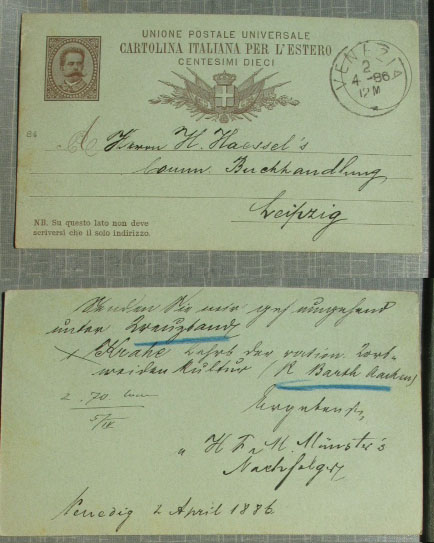 UNIONE POSTALE UNIVERSALE
CARTOLINA ITALIANA PER L'ESTERO
CENTESIMI DIECI
VENEZIA
2
4-86
12M
84
Herrn H. Haessel's
Comm. Buchhandlung
Leipzig
NB. Su questo lato non deve
scriversi che il solo indirizzo.
Senden Sie mir gef umgehend
unter Kreuzband
Krahe Lehrb der ration. Korb-
weiden Kultur (R Barth Aachen)
2.70
5/IV
Ergebenst
H F & M. Münster's
Nachfolger
Venedig 2 April 1886.